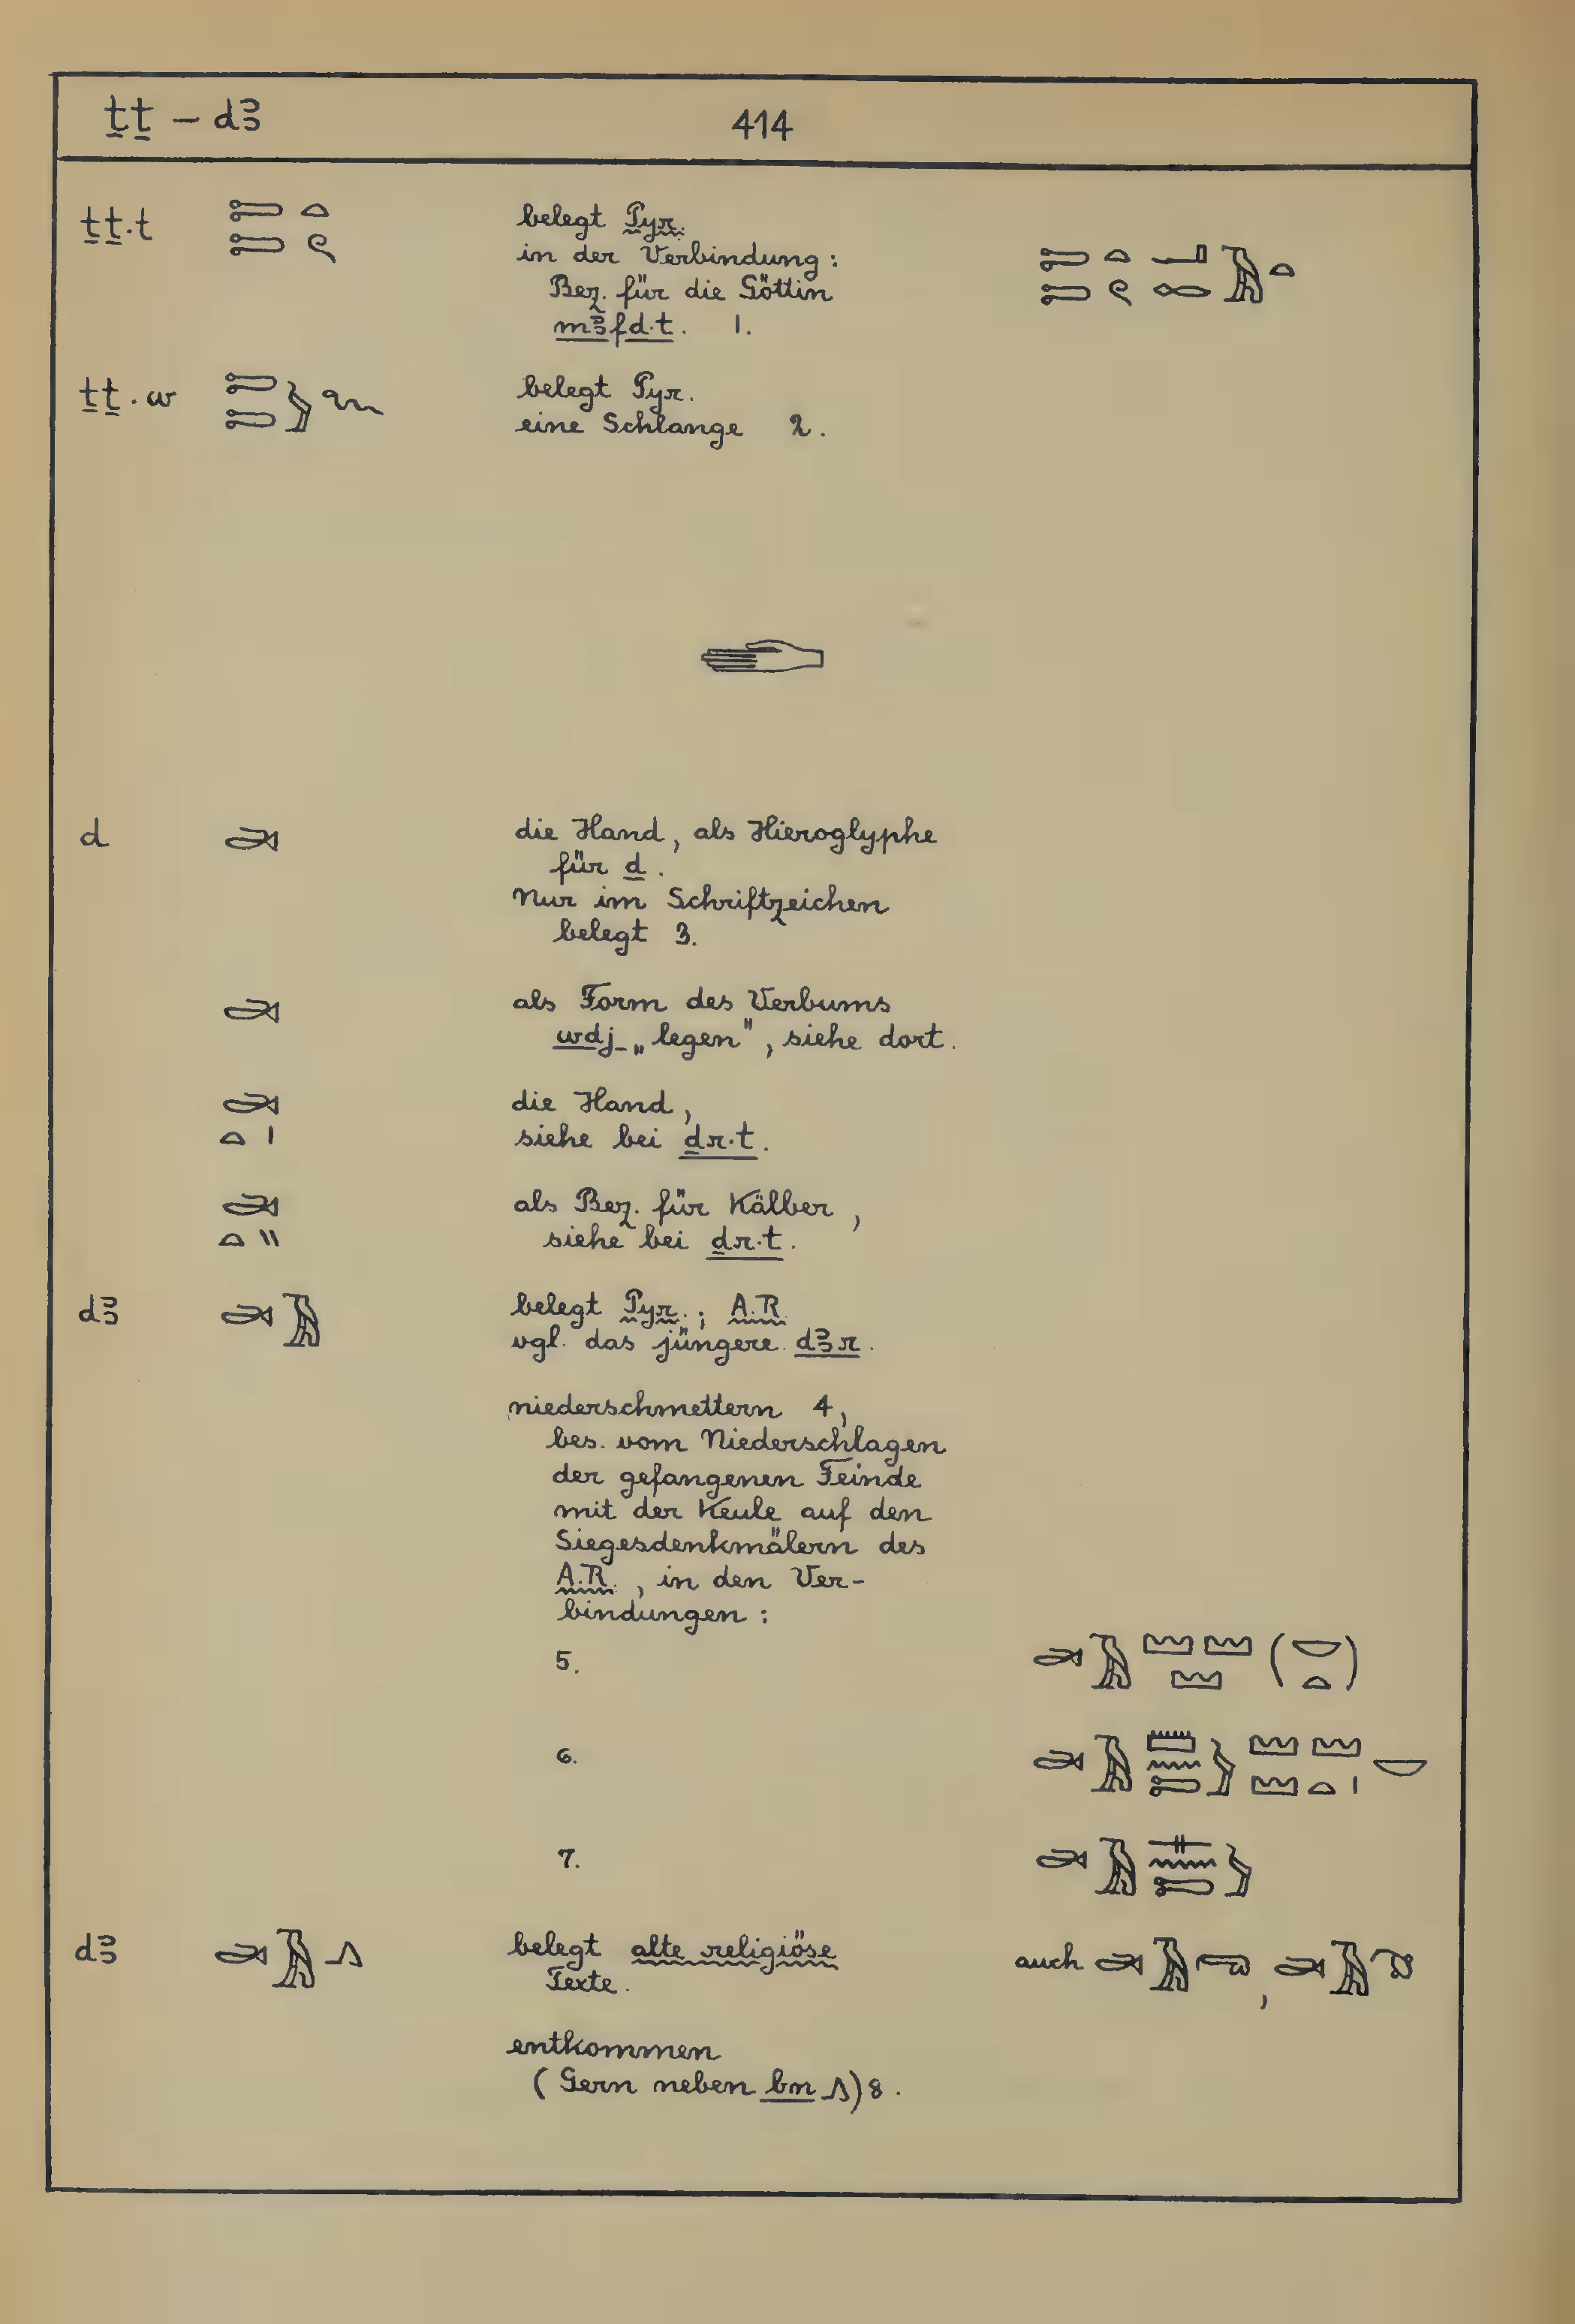 ṯṯ – dꜣ 414
ṯṯ.t belegt Pyr.
in der Verbindung:
Bez. für die Göttin
mꜣfd.t. 1.
ṯṯ.w belegt Pyr.
eine Schlange 2.
d die Hand, als Hieroglyphe
für d.
Nur im Schriftzeichen
belegt 3.
als Form des Verbums
wdj „legen", siehe dort.
die Hand,
siehe bei ḏr.t.
als Bez. für Kälber,
siehe bei ḏr.t.
dꜣ belegt Pyr.; A.R.
vgl. das jüngere dꜣr.
niederschmettern 4,
bes. vom Niederschlagen
der gefangenen Feinde
mit der Keule auf den
Siegesdenkmälern des
A.R., in den Ver-
bindungen:
5.
6.
7.
dꜣ belegt alte religiöse auch ,
Texte.
entkommen
(Gern neben bn 𓂻) 8.